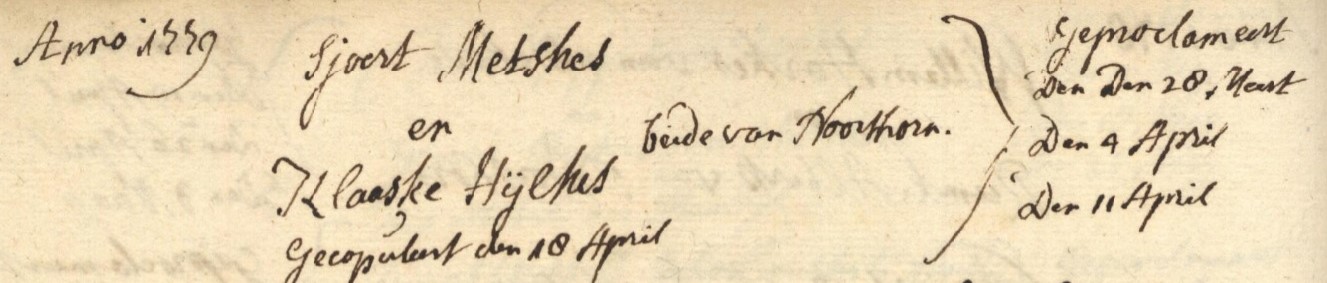 Anno 1779
Sjoert Metskes
en
Klaaske Hijlkes
Gecopuleert den 18 April
beide van Noorthorn.
Geproclameert
Den Den 28, Meert
Den 4 April
Den 11 April